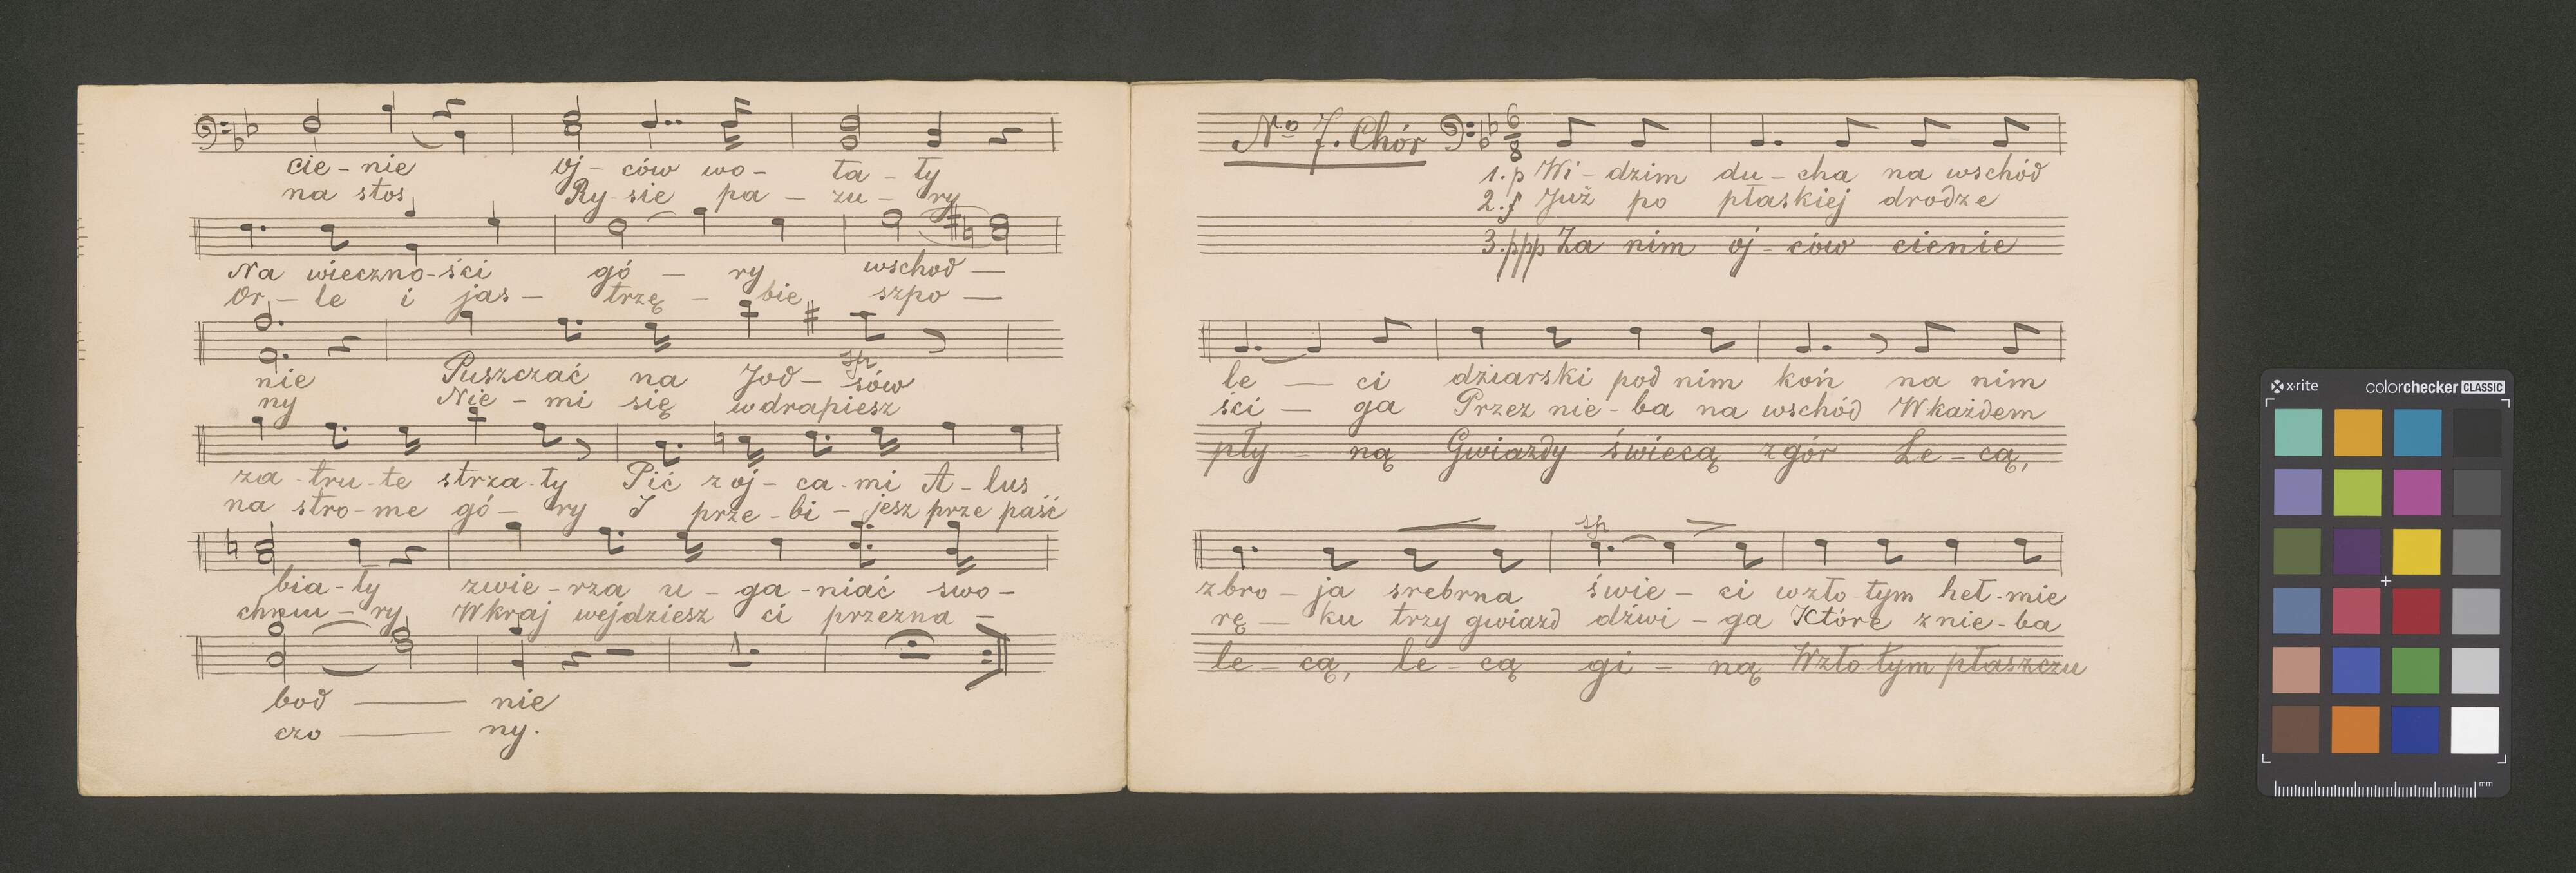 cie - nie oj - ców wo - ła - ły
na stos Ry - sie pa - zu - ry
Na wieczno - ści gó - ry wschod -
Or - le i jas - trzę - bie szpo -
sp
nie Puszczać na Jod - sów
ny Nie - mi się wdrapiesz
za - tru - te strza - ły Pić z oj - ca - mi A - lus
na stro - me gó - ry I prze - bi - jesz prze paść
bia - ły zwie - rza u - ga - niać swo -
chmu - ry W kraj wejdziesz ci przezna -
bod - nie
czo - ny.
No 7. Chór 6/8
1. p Wi - dzim du - cha na wschód
2. f Już po płaskiej drodze
3. ppp Za nim oj - ców cienie
le - ci dziarski pod nim koń na nim
ści - ga Przez nie - ba na wschód W każdem
pły - ną Gwiazdy świecą z gór Le - cą,
sp
zbro - ja srebrna świe - ci w zło tym heł - mie
rę - ku trzy gwiazd dźwi - ga Które z nie - ba
le - cą, le - cą gi - ną W zło tym płaszczu
x·rite colorchecker CLASSIC
mm